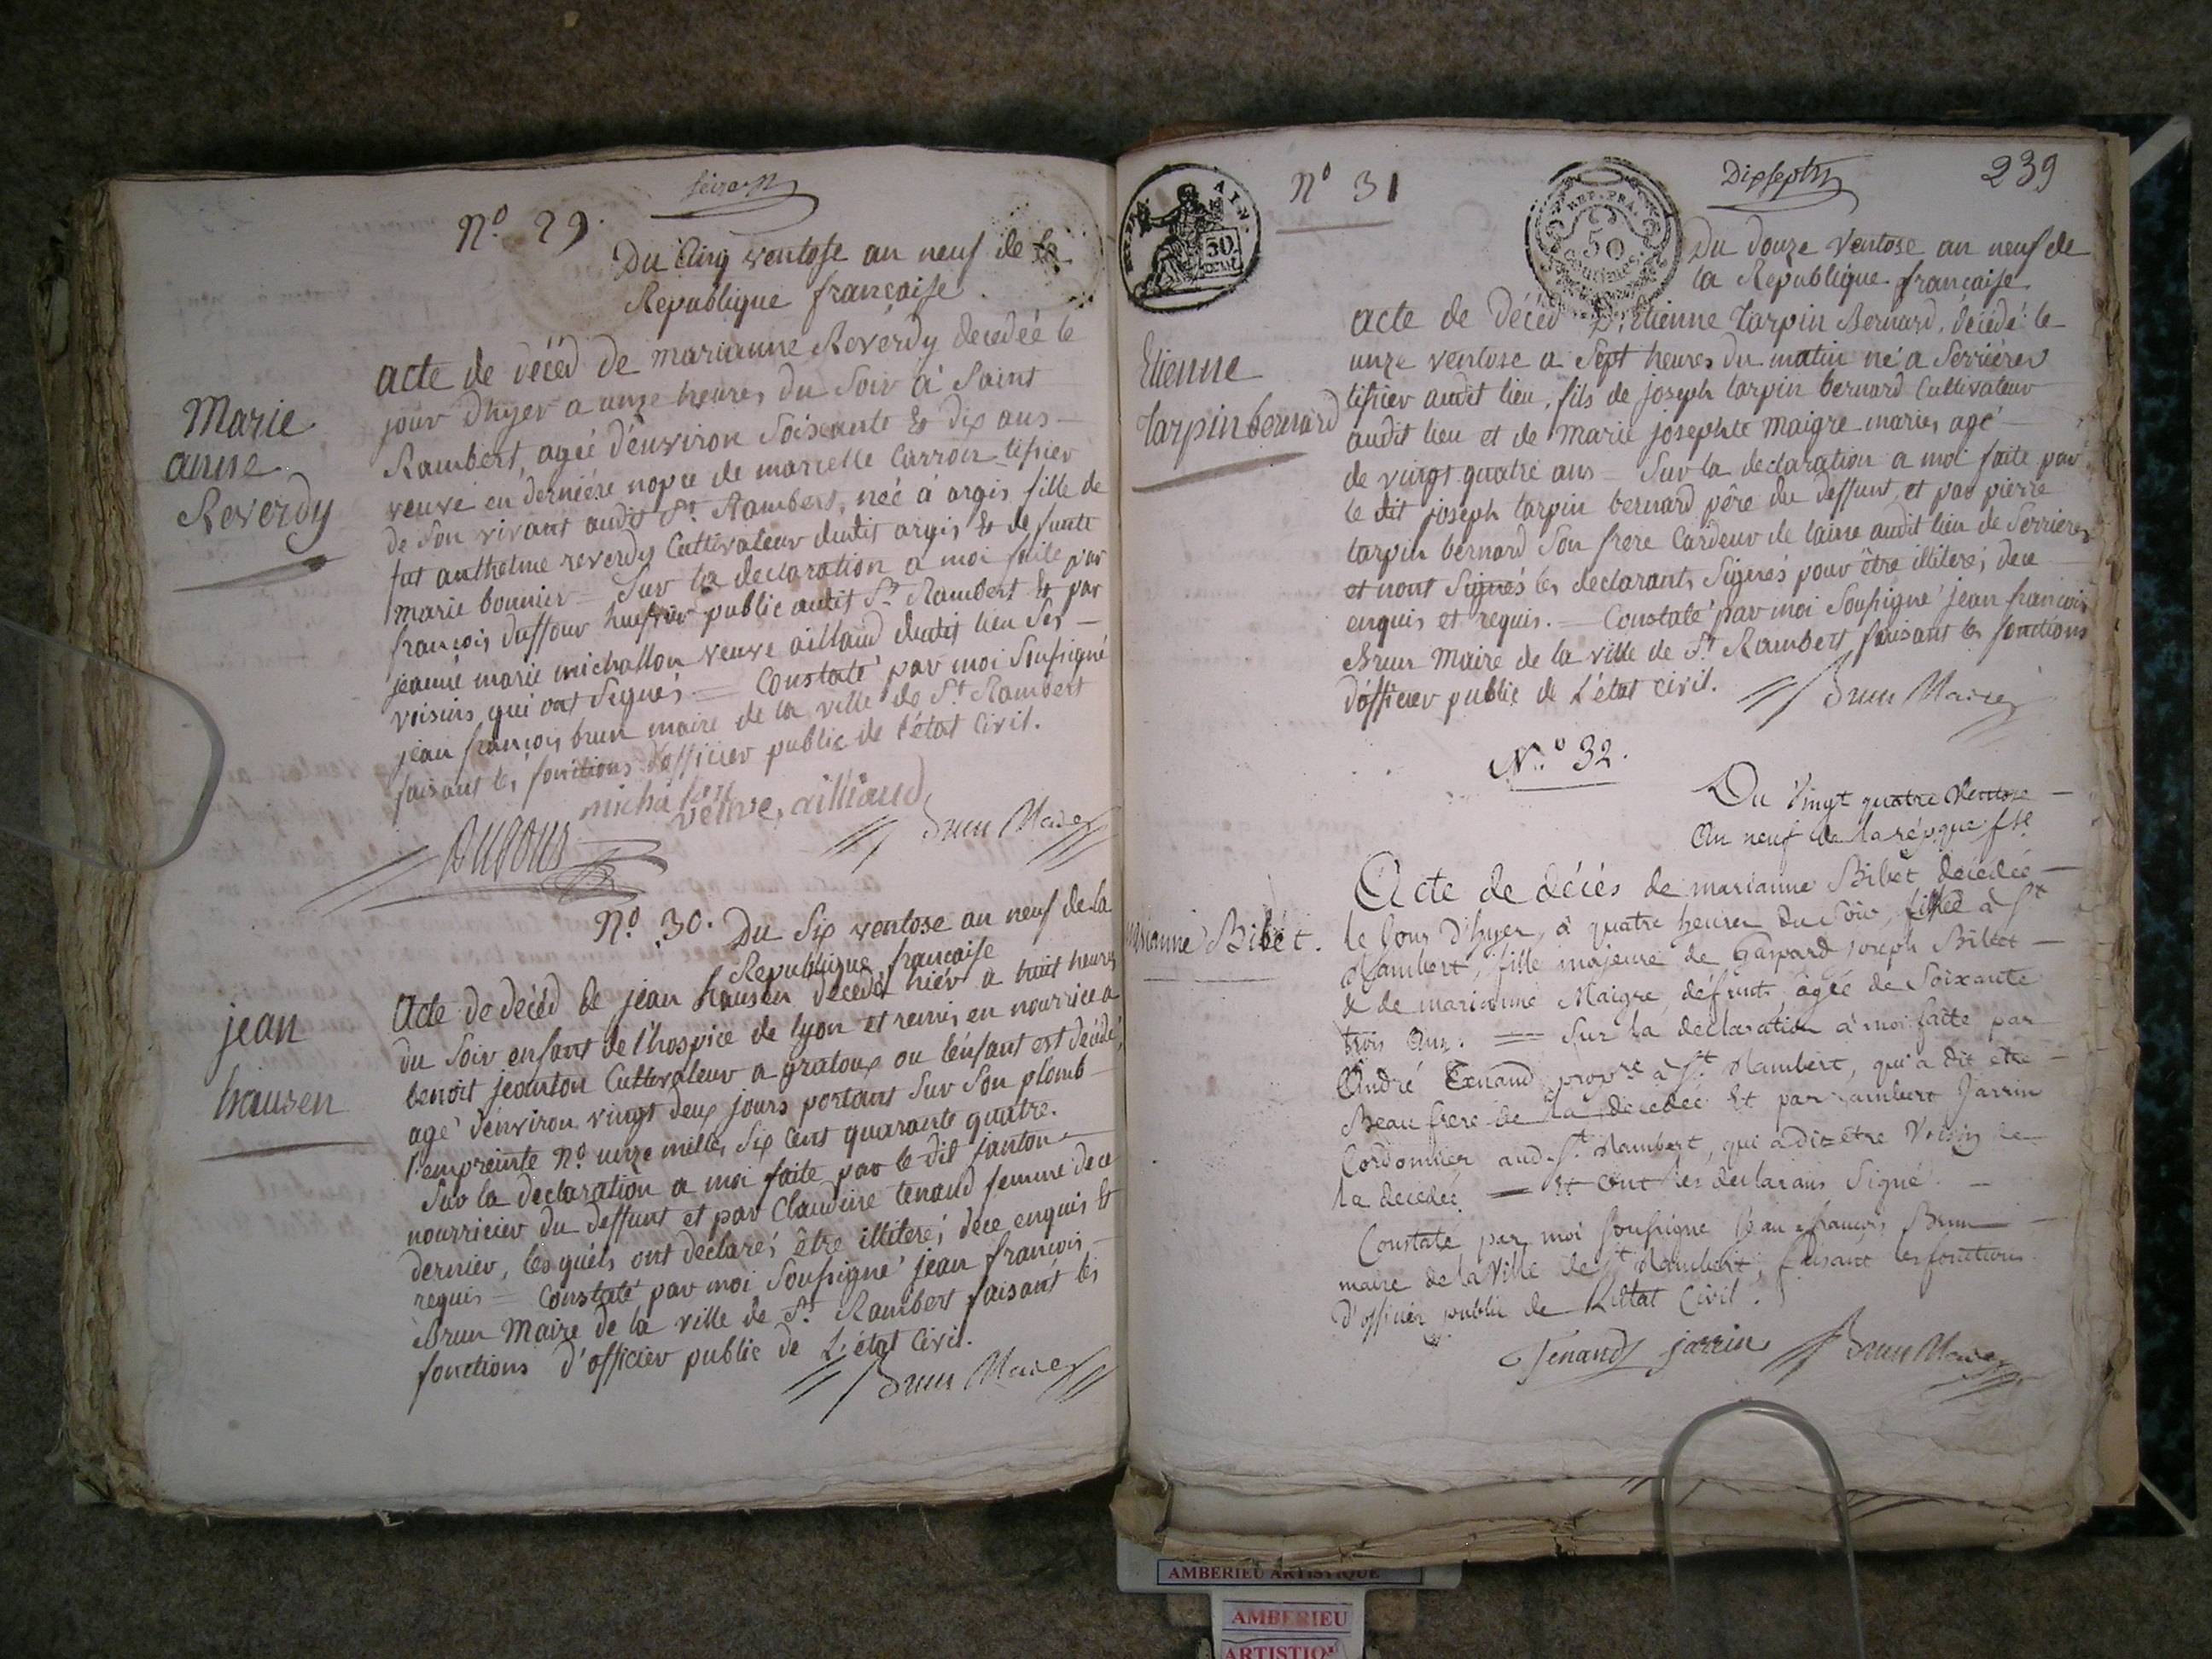 seize
Nº. 29.
Du Cinq ventose au neuf de la
Republique française
Marie
anne
Reverdy
acte de décéd de marianne Reverdy decedéé le
jour d'hyer a unze heures du Soir à Saint
Rambert, ageé d'environ Soixante & dix ans —
veuve en derniére nopce de marcelle Carron tissier
de Son vivant audit St. Rambert, neé à argis fille de
fut anthelme reverdy Cultivateur dudit argis & de funte
marie bonnier — Sur la declaration a moi faite par
françois duffour huissier public audit St. Rambert & par
jeanne marie michallon veuve aillaud dudit lieu Ses —
voisins qui ont Signés. — Constaté par moi Soussigné
jean françois brun maire de la ville de St. Rambert
faisant les fonctions d'officier public de l'état Civil.
michallon
veuve, ailliaud
Dufour
Brun Maire
Nº. 30. Du Six ventose au neuf de la
Republique française
jean
hausen
Acte de decéd de jean hausen decedé hiér a huit heures
du Soir enfant de l'hospice de lyon et remis en nourrice a
benoit jeanton Cultivateur a gratoux ou l'enfant est decédé,
agé d'environ vingt deux jours portant Sur Son plomb —
l'empreinte Nº. unze mille, Six Cent quarante quatre.
Sur la declaration a moi faite par le dit janton —
nourricier du deffunt et par Claudine tenand femme de ce
dernier, lesquéls ont declarés être illiterés, dece enquis &
requis — Constaté par moi Soussigné jean françois —
Brun Maire de la ville de St. Rambert faisant les
fonctions d'officier public de L'état Civil.
Brun Maire
Nº 31
AIN
50
REP. FRA.
50
Centimes
Dixsept
239
Du douze Ventose an neuf de
la Republique française.
Etienne
tarpin bernard
acte de décéd D'etienne tarpin Bernard, décédé le
unze ventose a Sept heures du matin né a Serriéres
tissier audit lieu, fils de joseph tarpin bernard Cultivateur
audit lieu et de Marie josephte Maigre mariés, agé —
de vingt quatre ans — Sur la declaration a moi faite par
le dit joseph tarpin bernard pére du deffunt et par pierre
tarpin bernard Son frere Cardeur de laine audit lieu de Serriéres
et nont Signés les declarants Signés pour être illiterés, dece
enquis et requis. — Constaté par moi Soussigné jean françois
Brun Maire de la ville de St. Rambert faisant les fonctions
d'officier public de L'état civil.
Brun Maire
Nº. 32.
Du Vingt quatre Ventose —
An neuf de la répque fse
marianne Bibét.
Acte de décés de marianne Bibet décédée —
le Jour D'hyer, à quatre heures du Soir, à St
Rambert, fille majeure de Gaspard joseph Bibet —
& de marianne Maigre, défunts, âgée de Soixante
trois Ans. — Sur la déclaration à moi faite par
André Tenand propre à St. Rambert, qui a dit être —
Beau frere de la décédée & par rambert Jarrin
Cordonnier aud. St. Rambert, qui a dit être Voisin de
la décédée. — Et ont les déclarans Signé. —
Constaté par moi soussigné Jean françois Brun —
maire de la Ville de St. Rambert, faisant les fonctions
d'officier public de L'Etat Civil.
Tenand jarrin Brun Maire
AMBERIEU ARTISTIQUE
AMBERIEU
ARTISTIQU